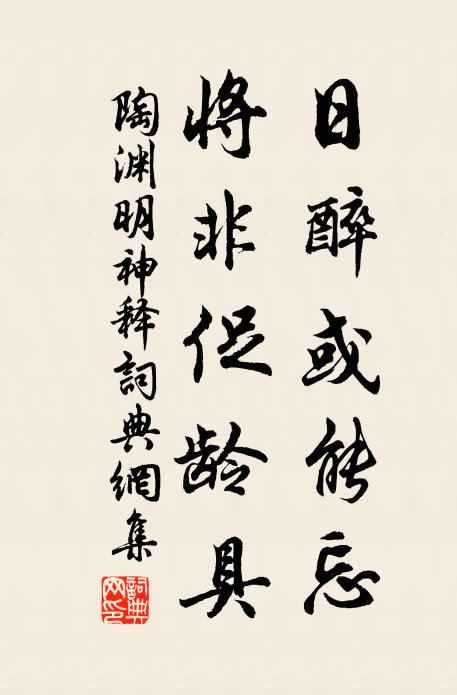 日醉或能忘
将非促龄具
陶渊明神释詞典網集
詞典网印